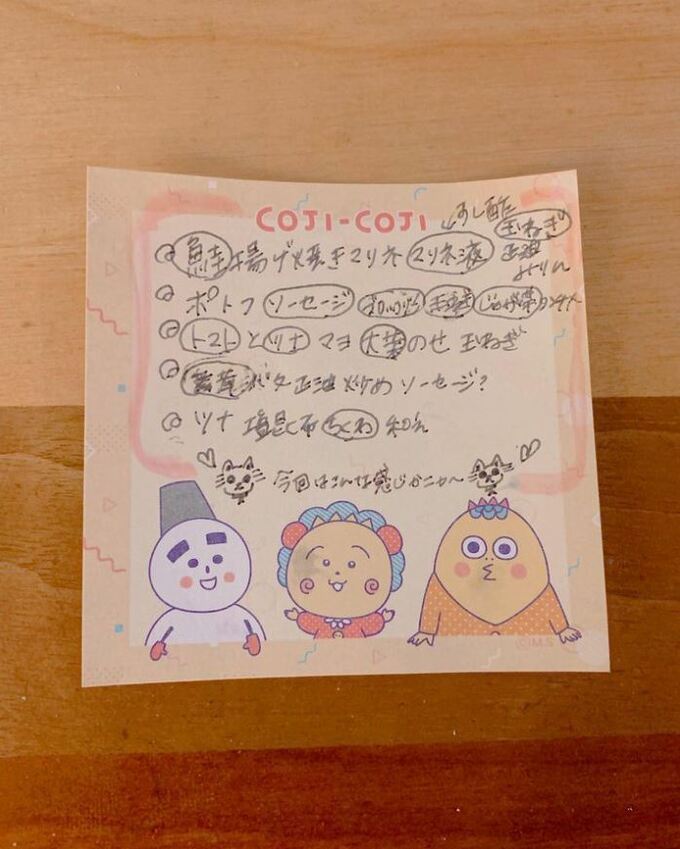 COJI-COJI
すし酢
玉ねぎ
鮭揚げ焼きマリネ マリネ液
みりん
ポトフ ソーセージ
トマトとツナマヨ大葉のせ 玉ねぎ
正油炒め ソーセージ?
ツナ塩昆布ちくわ和え
今回はこんな感じかニャ〜
©M.S